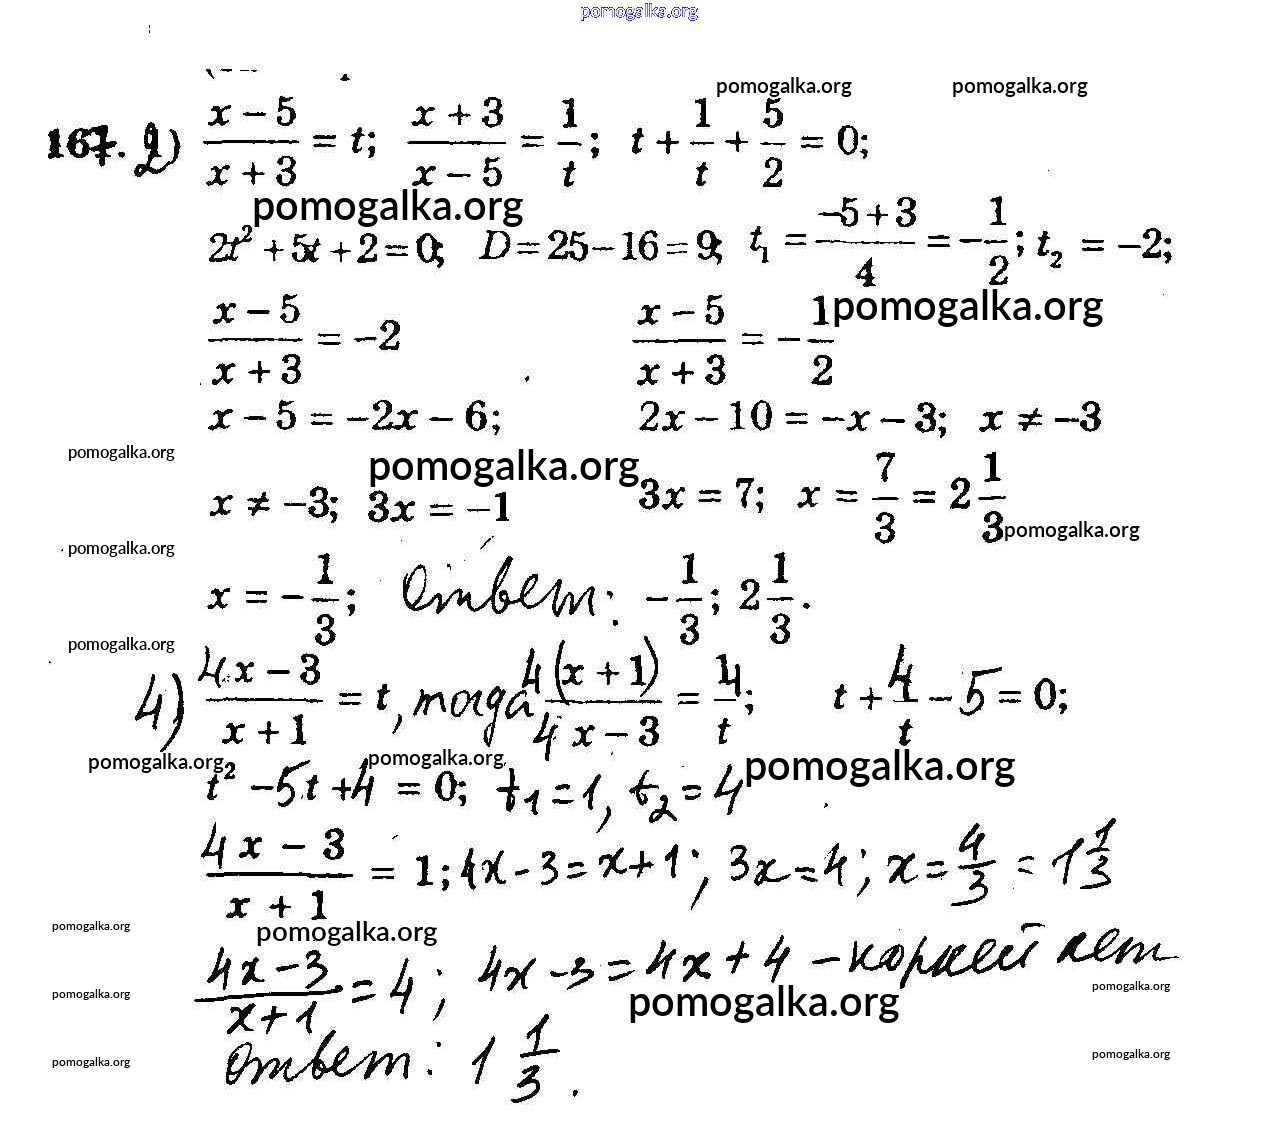 pomogalka.org
pomogalka.org pomogalka.org
167. 2) (x − 5)/(x + 3) = t; (x + 3)/(x − 5) = 1/t; t + 1/t + 5/2 = 0;
pomogalka.org
2t² + 5t + 2 = 0; D = 25 − 16 = 9; t₁ = (−5 + 3)/4 = −1/2; t₂ = −2;
pomogalka.org
(x − 5)/(x + 3) = −2 (x − 5)/(x + 3) = −1/2
x − 5 = −2x − 6; 2x − 10 = −x − 3; x ≠ −3
pomogalka.org pomogalka.org
x ≠ −3; 3x = −1 3x = 7; x = 7/3 = 2 1/3
pomogalka.org
pomogalka.org
x = −1/3; Ответ: −1/3; 2 1/3.
pomogalka.org
4) (4x − 3)/(x + 1) = t, тогда 4(x + 1)/(4x − 3) = 4/t; t + 4/t − 5 = 0;
pomogalka.org pomogalka.org pomogalka.org
t² − 5t + 4 = 0; t₁ = 1, t₂ = 4
(4x − 3)/(x + 1) = 1; 4x − 3 = x + 1; 3x = 4; x = 4/3 = 1 1/3
pomogalka.org pomogalka.org
(4x − 3)/(x + 1) = 4; 4x − 3 = 4x + 4 − корней нет
pomogalka.org pomogalka.org pomogalka.org
Ответ: 1 1/3.
pomogalka.org pomogalka.org